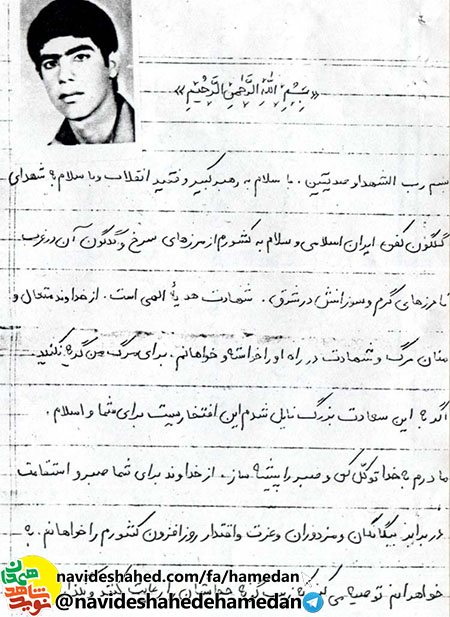 «بِسْمِ اللّهِ الرَّحْمنِ الرَّحیْمِ»
بسم رب الشهداء و صدیقین. با سلام به رهبر کبیر و فقید انقلاب و با سلام به شهدای
گلگون کفن ایران اسلامی و سلام به کشورم از مرزهای سرخ و گلگون آن در غرب
تا مرزهای گرم و سوزانش در شرق. شهادت هدیهٔ الهی است. از خداوند متعال و
منان مرگ و شهادت در راه او را خواسته و خواهانم. برای مرگ من گریه نکنید.
اگر به این سعادت بزرگ نایل شدم این افتخاریست برای شما و اسلام.
مادرم به خدا توکل کن و صبر را پیشه ساز. از خداوند برای شما صبر و استقامت
در برابر بیگانگان و مزدوران و عزت و اقتدار روزافزون کشورم را خواهانم. به
خواهرانم توصیه می کنم که
navideshahed.com/fa/hamedan
@navideshahedehamedan
نوید شاهد همدان